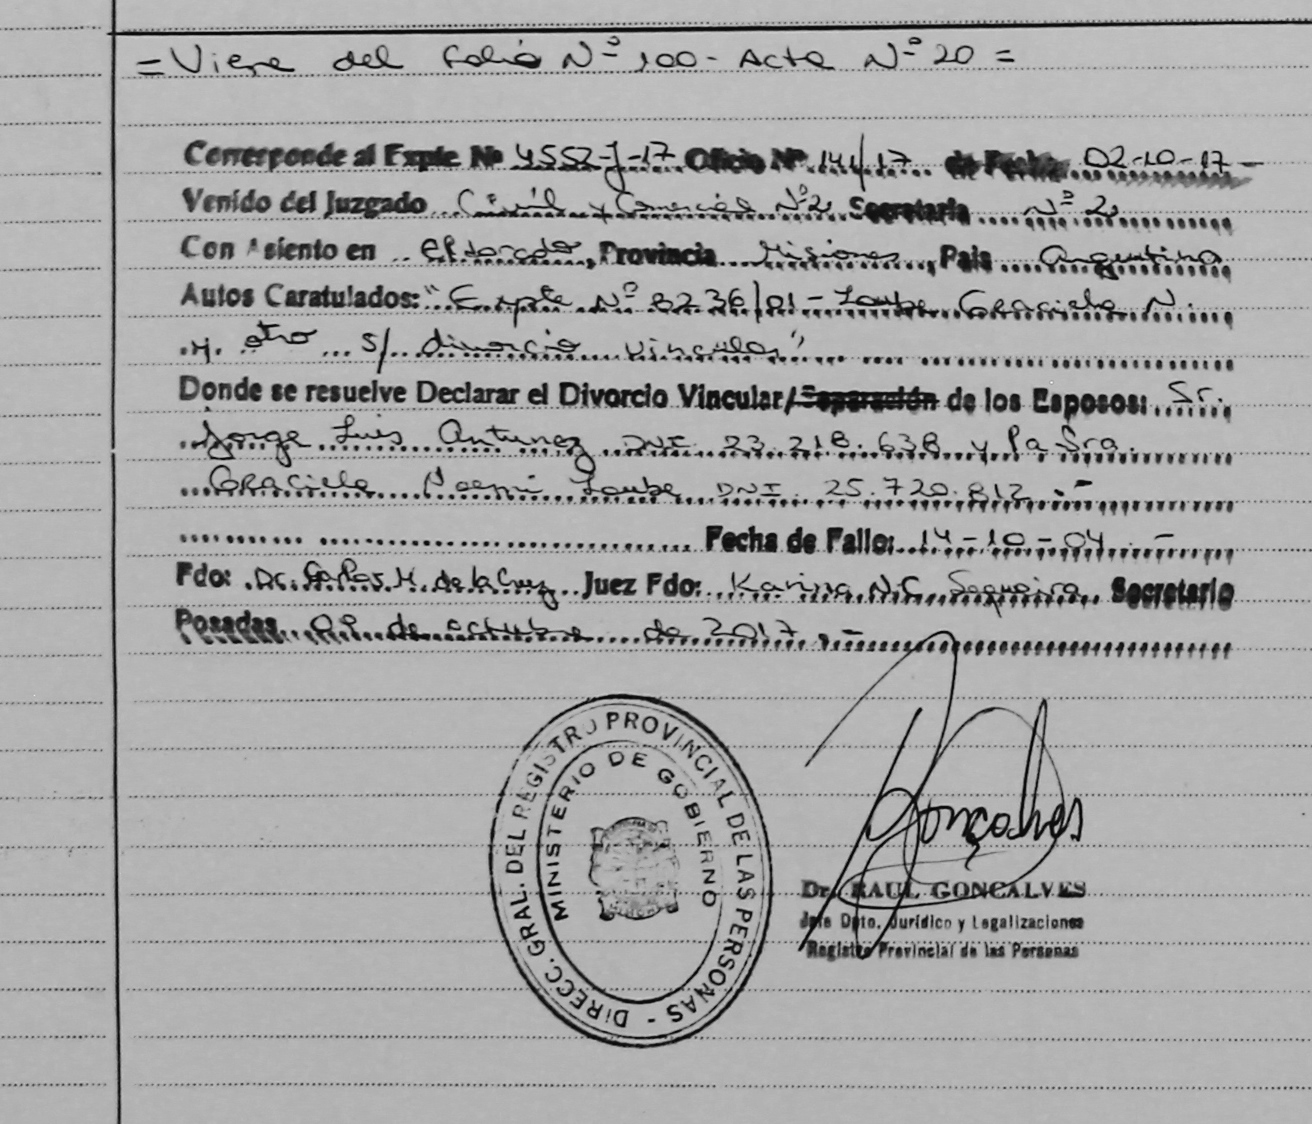 = Viene del folio Nº 100 - Acta Nº 20 =
Corresponde al Expte Nº 4552-J-17 Oficio Nº 141/17 de Fecha 02-10-17 -
Venido del Juzgado Civil y Comercial Nº 2 Secretaria Nº 2
Con Asiento en Eldorado, Provincia Misiones, Pais Argentina
Autos Caratulados: "Expte Nº 8236/01 - Loube Graciela N.
y otro s/ divorcio vincular"
Donde se resuelve Declarar el Divorcio Vincular/Separación de los Esposos: Sr.
Jorge Luis Antunez DNI 23.218.638 y la Sra.
Graciela Noemi Loube DNI 25.720.812.-
Fecha de Fallo: 14-10-04 -
Fdo: Dr. Carlos H. de la Cruz Juez Fdo: Karina N.C. Sequeira Secretario
Posadas, 09 de octubre de 2017.-
DIRECC. GRAL. DEL REGISTRO PROVINCIAL DE LAS PERSONAS -
MINISTERIO DE GOBIERNO
Gonçalves
Dr. RAUL GONCALVES
Jefe Dpto. Jurídico y Legalizaciones
Registro Provincial de las Personas